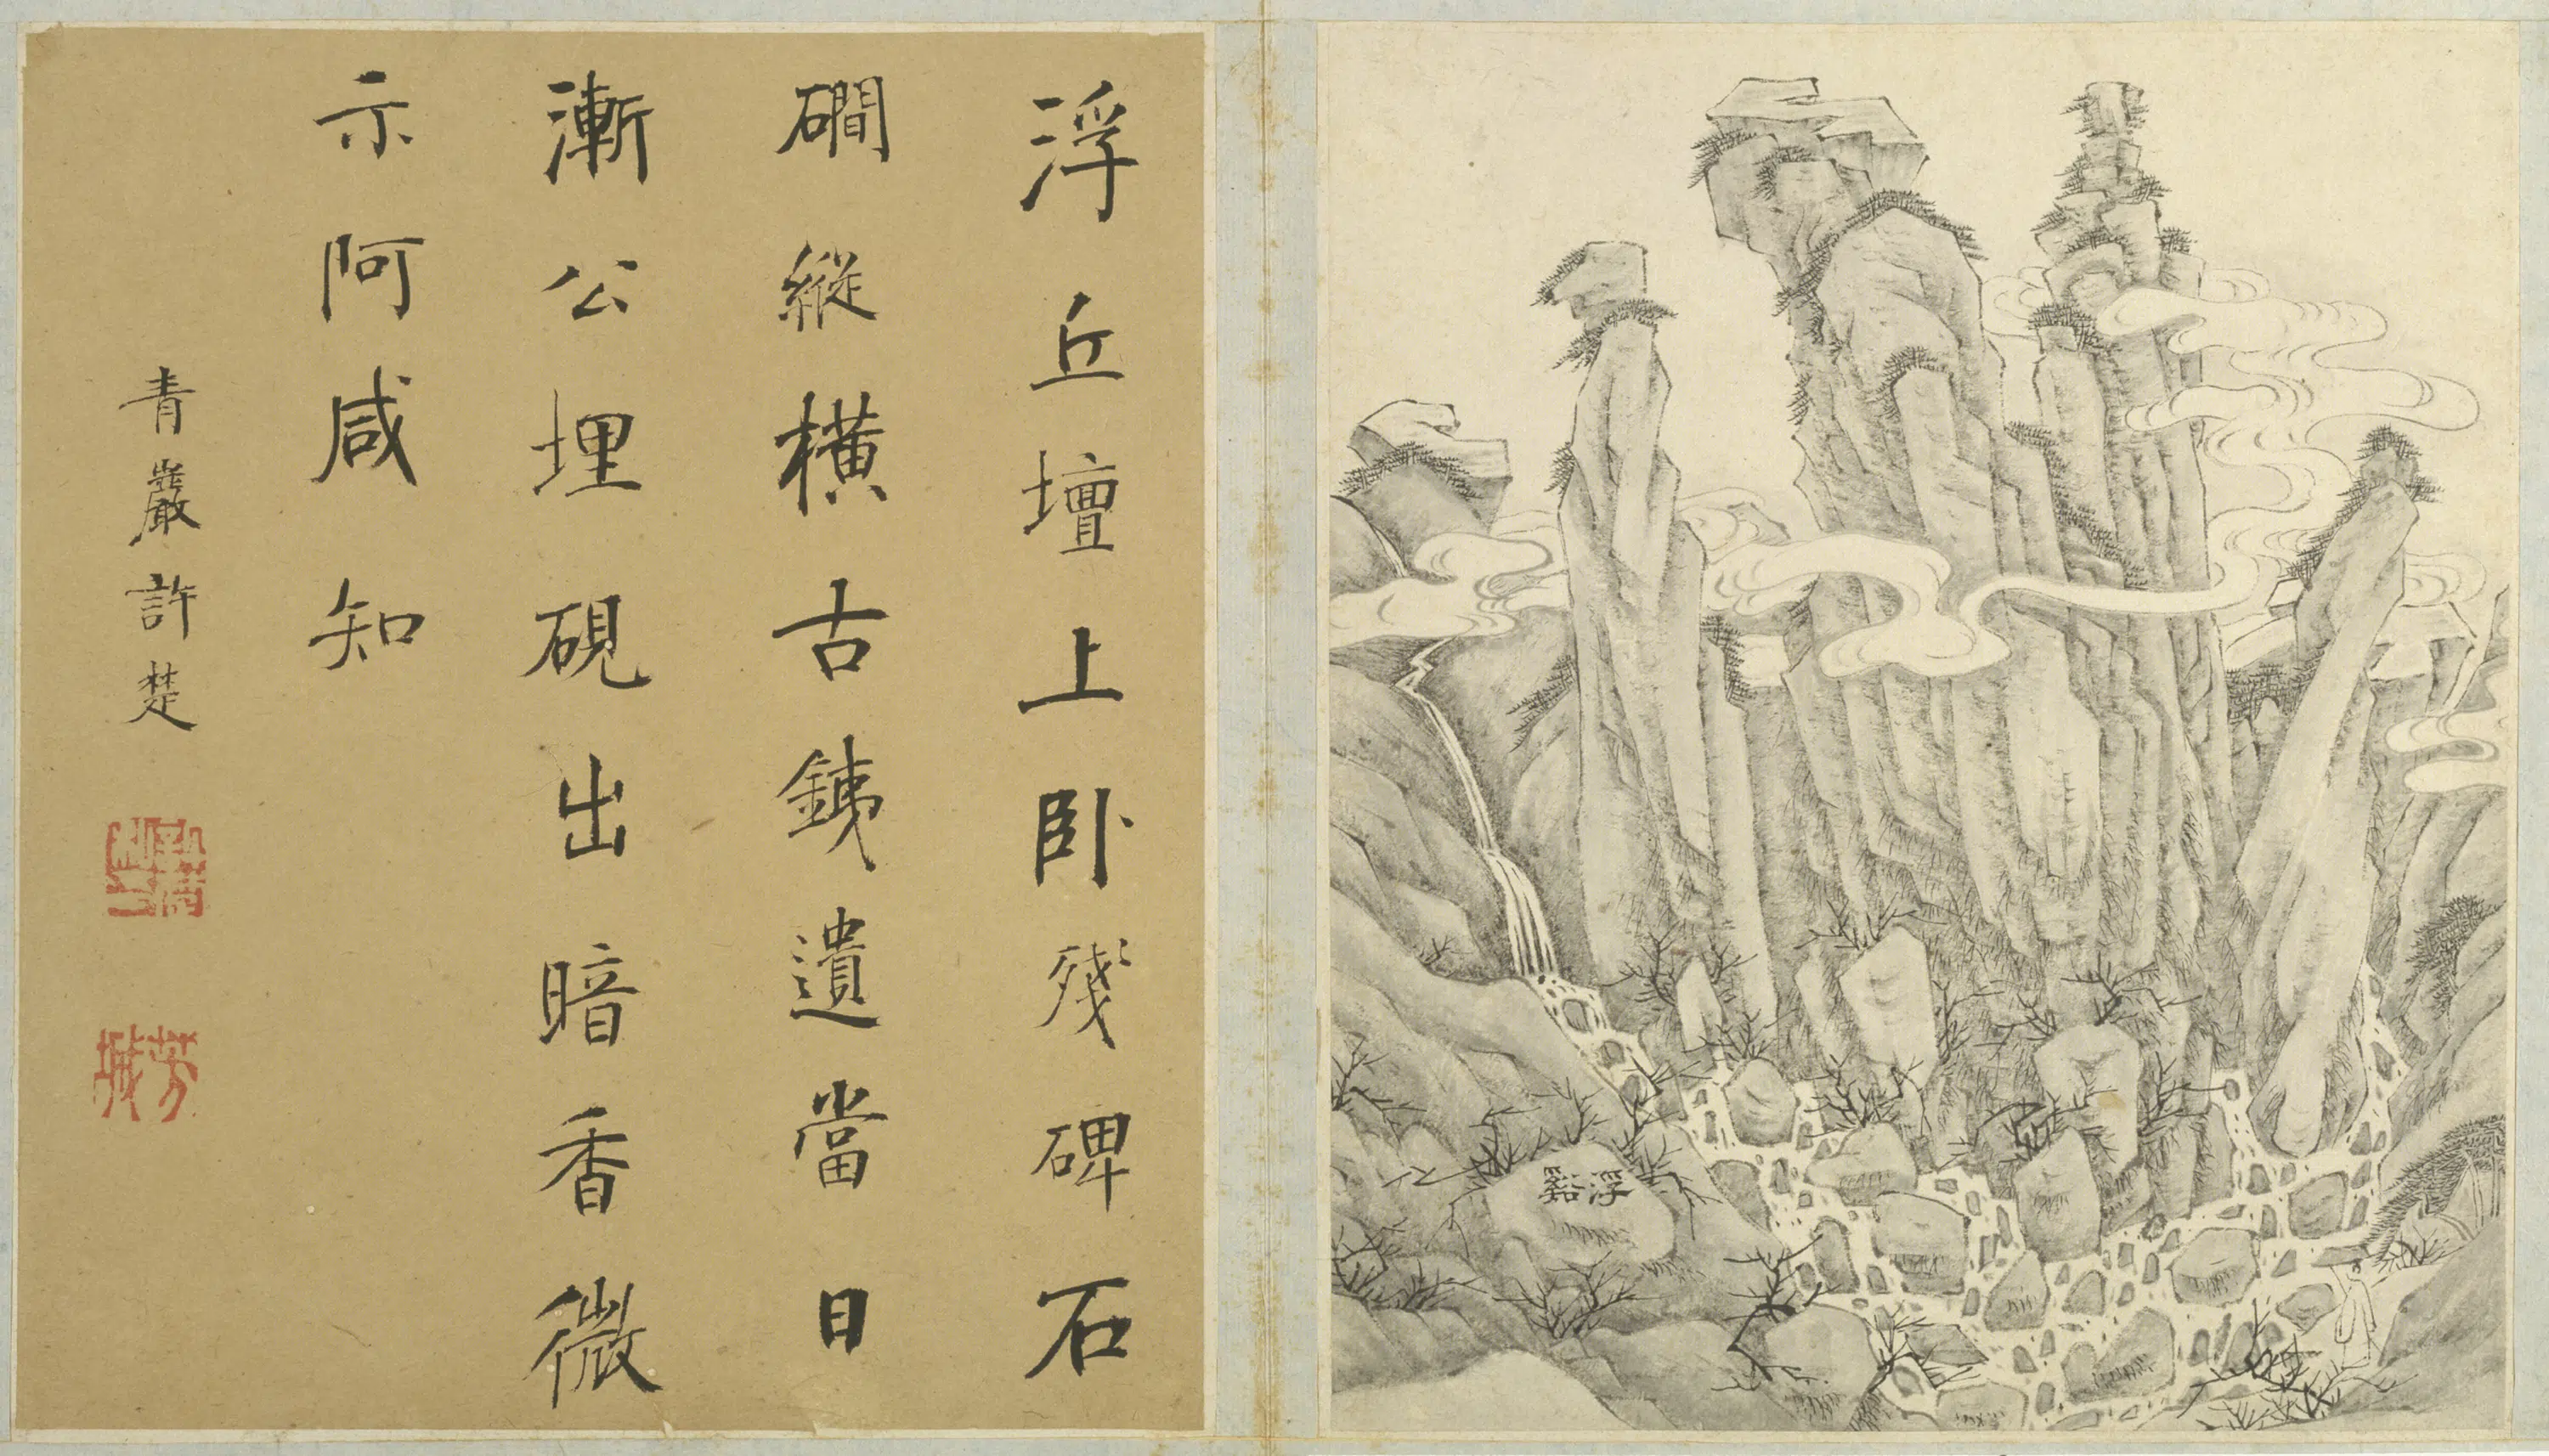 浮丘壇上卧殘碑石
磵縱橫古銕遺當日
漸公埋硯出暗香微
示阿咸知
青巖許楚
芳城
浮谿